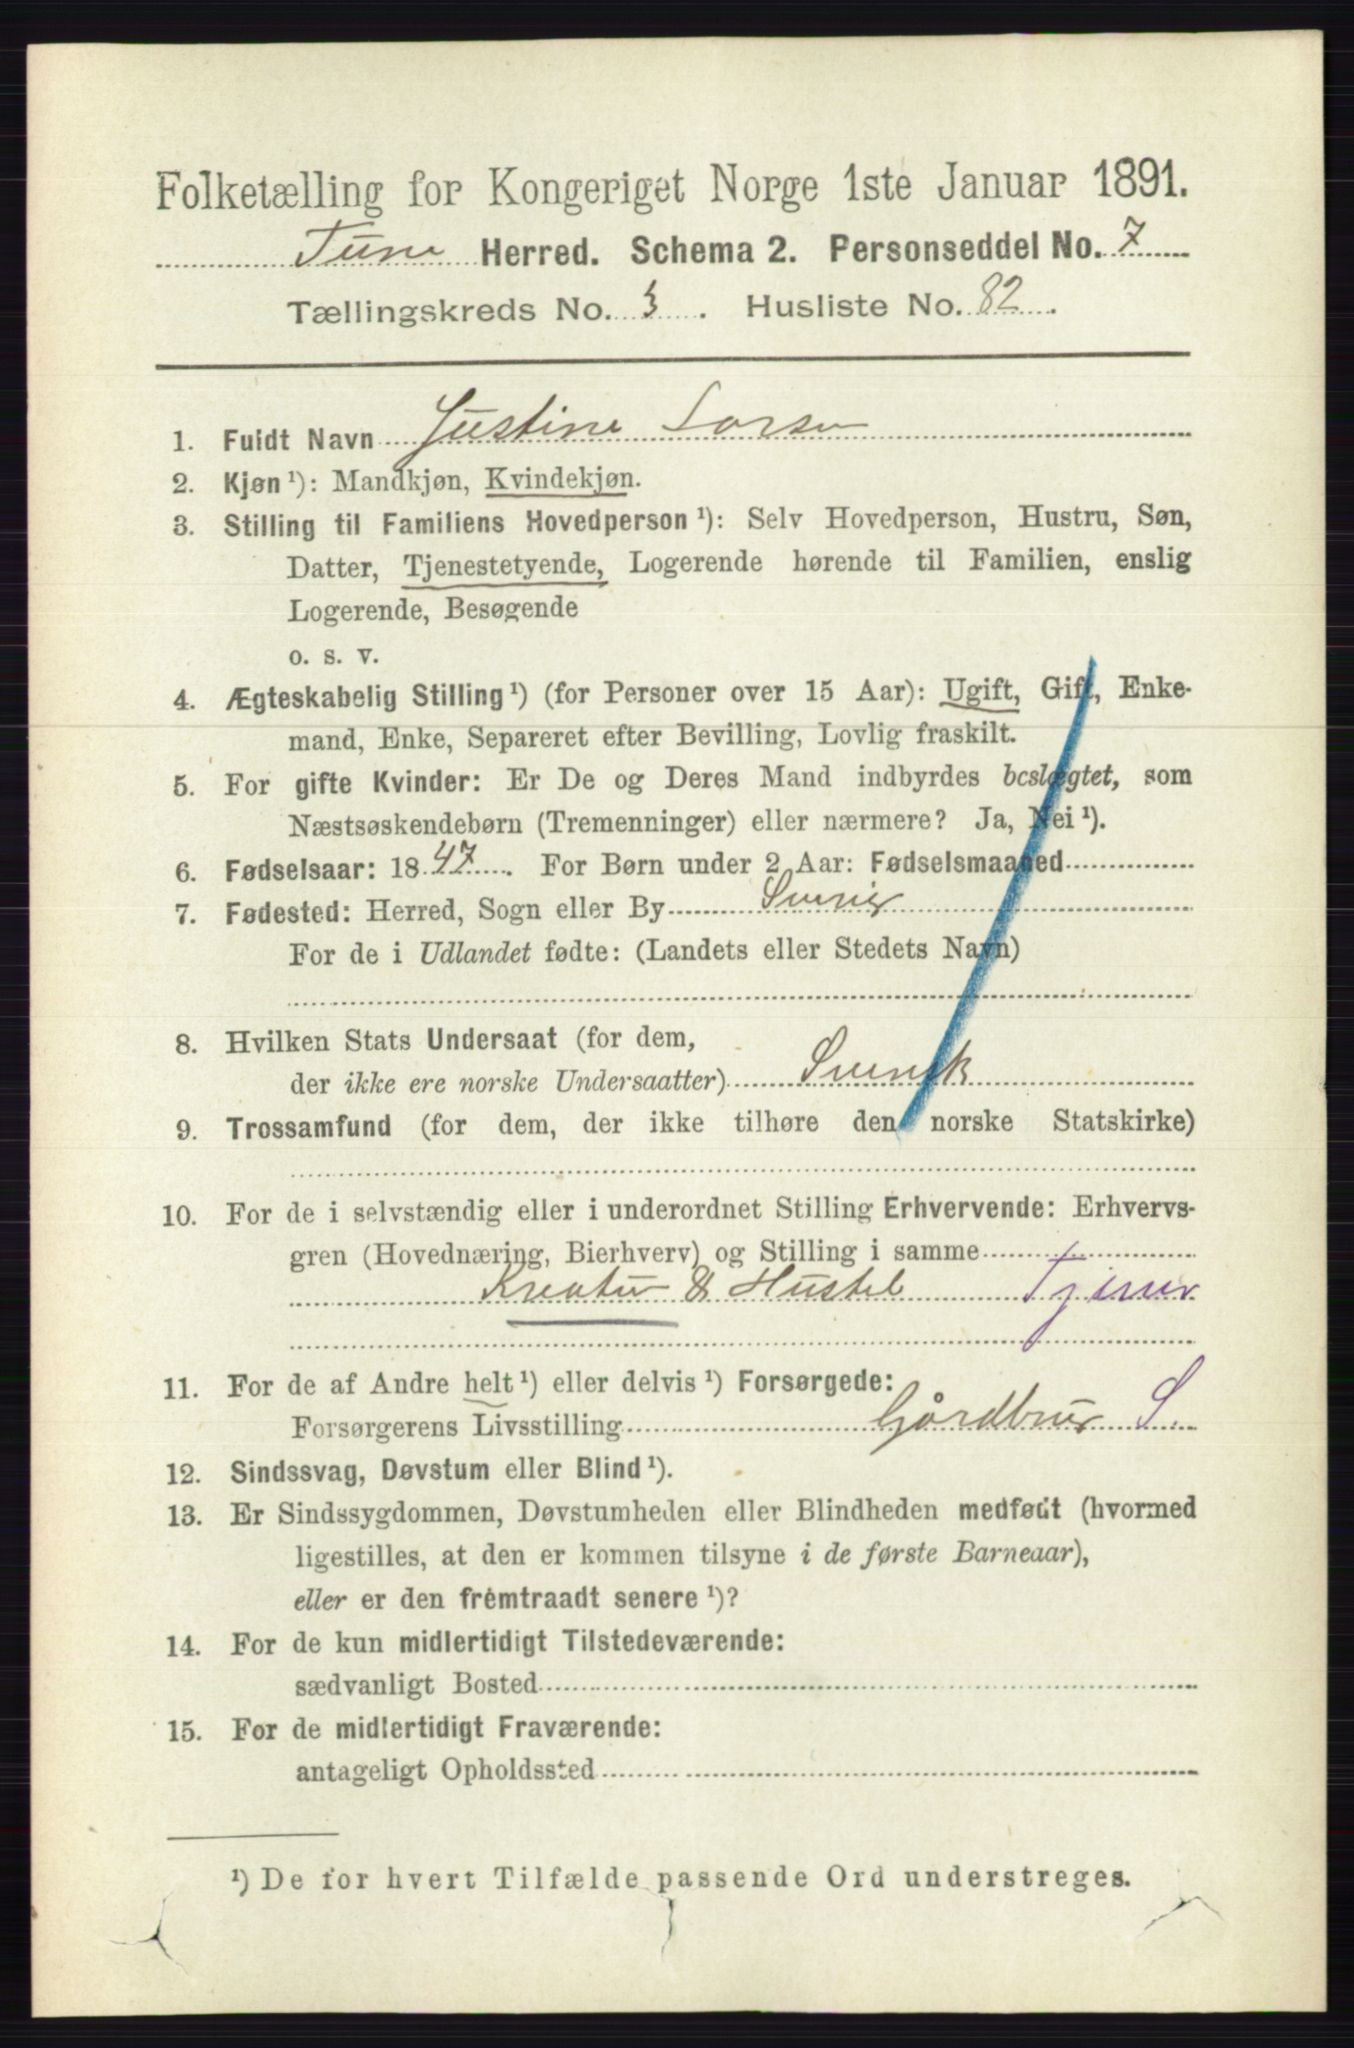 Folketælling for Kongeriget Norge 1ste Januar 1891.
Tune Herred. Schema 2. Personseddel No. 7
Tællingskreds No. 3. Husliste No. 82.
1. Fuldt Navn Justine Larsen
2. Kjøn ¹): Mandkjøn, Kvindekjøn.
3. Stilling til Familiens Hovedperson ¹): Selv Hovedperson, Hustru, Søn,
Datter, Tjenestetyende, Logerende hørende til Familien, enslig
Logerende, Besøgende
o. s. v.
4. Ægteskabelig Stilling ¹) (for Personer over 15 Aar): Ugift, Gift, Enke-
mand, Enke, Separeret efter Bevilling, Lovlig fraskilt.
5. For gifte Kvinder: Er De og Deres Mand indbyrdes beslægtet, som
Næstsøskendebørn (Tremenninger) eller nærmere? Ja, Nei ¹).
6. Fødselsaar: 1847. For Børn under 2 Aar: Fødselsmaaned
7. Fødested: Herred, Sogn eller By Sverig
For de i Udlandet fødte: (Landets eller Stedets Navn)
8. Hvilken Stats Undersaat (for dem,
der ikke ere norske Undersaatter) Svensk
9. Trossamfund (for dem, der ikke tilhøre den norske Statskirke)
10. For de i selvstændig eller i underordnet Stilling Erhvervende: Erhvervs-
gren (Hovednæring, Bierhverv) og Stilling i samme
Kreatur & Hustel Tjener
11. For de af Andre helt ¹) eller delvis ¹) Forsørgede:
Forsørgerens Livsstilling Gårdbrug S.
12. Sindssvag, Døvstum eller Blind ¹).
13. Er Sindssygdommen, Døvstumheden eller Blindheden medfødt (hvormed
ligestilles, at den er kommen tilsyne i de første Barneaar),
eller er den fremtraadt senere ¹)?
14. For de kun midlertidigt Tilstedeværende:
sædvanligt Bosted
15. For de midlertidigt Fraværende:
antageligt Opholdssted
¹) De for hvert Tilfælde passende Ord understreges.